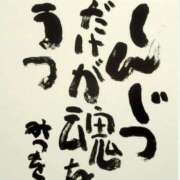 しんじつ
だけが魂を
うつ
みつを